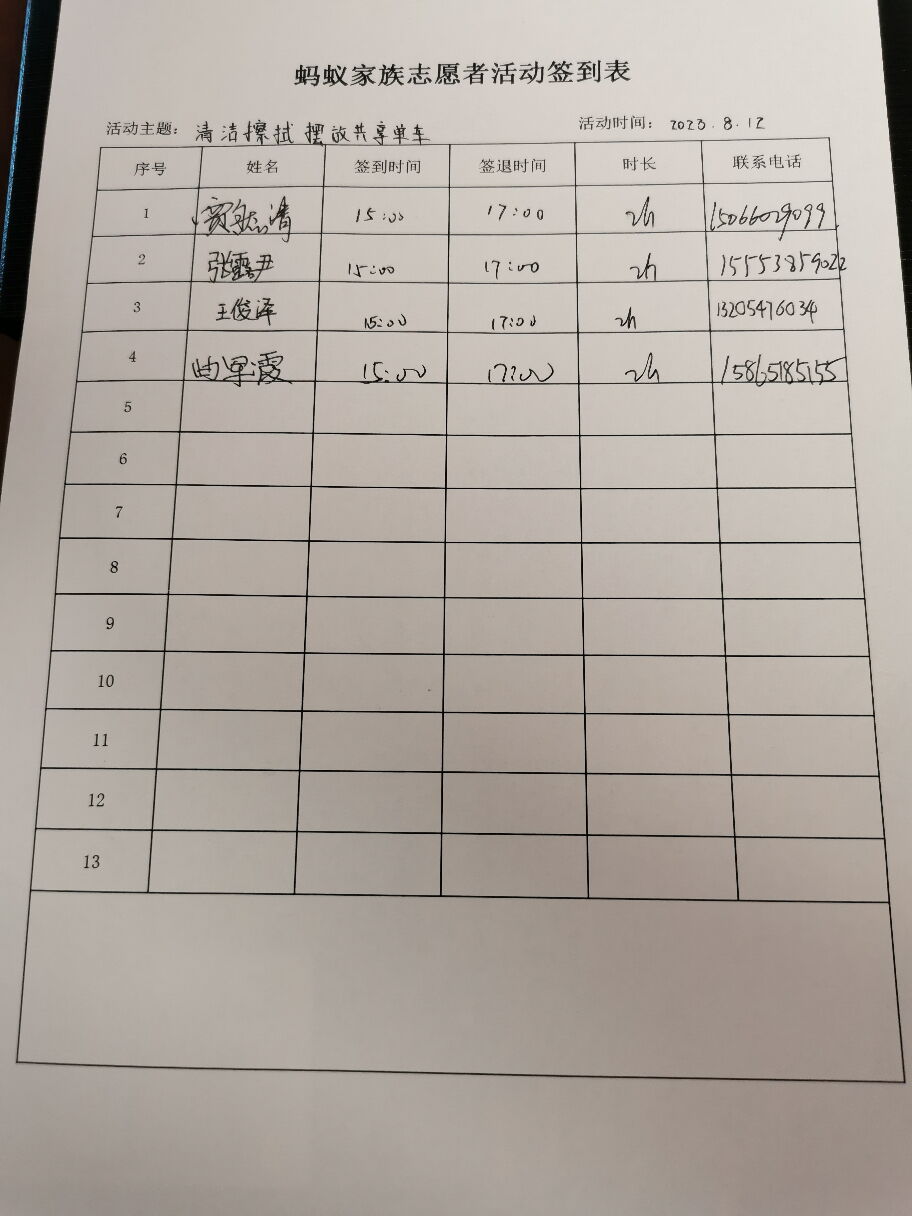 蚂蚁家族志愿者活动签到表
活动主题: 清洁擦拭 摆放共享单车 活动时间: 2023.8.12
序号 姓名 签到时间 签退时间 时长 联系电话
1 15:00 17:00 2h 15066029099
2 15:00 17:00 2h 15553859022
3 王俊泽 15:00 17:00 2h 13205476034
4 15:00 17:00 2h 15865185155
5
6
7
8
9
10
11
12
13